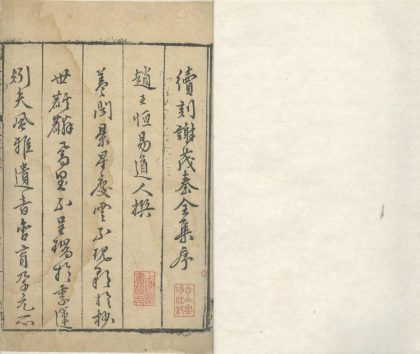 續刻謝茂秦全集序
趙王恒易道人撰
蓋聞景星慶雲不現彩於抄
世麒麟鳳凰不呈瑞於季運
矧夫風雅遺音